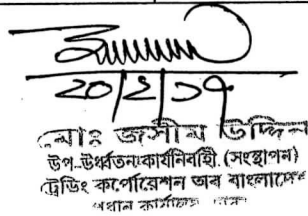 ২০/২/১৭
মোঃ জসীম উদ্দিন
উপ-উর্ধ্বতন কার্যনির্বাহী (সংস্থাপন)
ট্রেডিং কর্পোরেশন অব বাংলাদেশ
প্রধান কার্যালয়